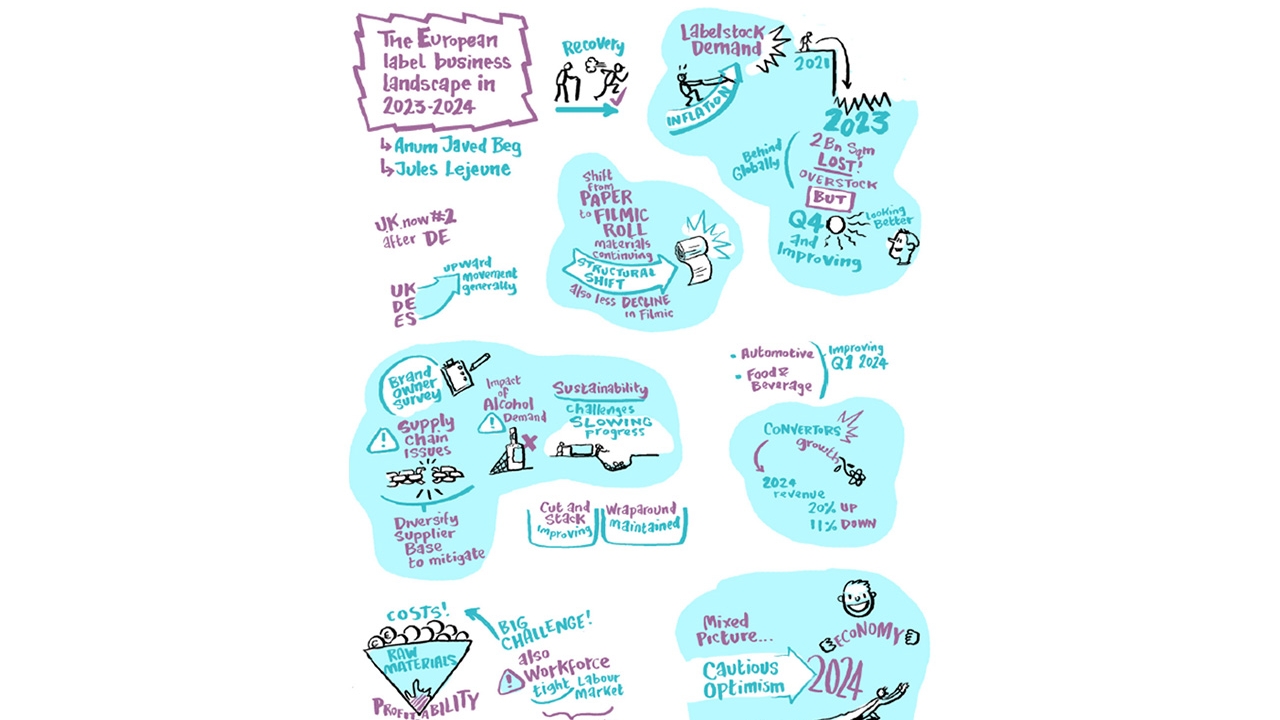 The European
label business
landscape in
2023-2024
Anum Javed Beg
Jules Lejeune
Recovery
Labelstock
Demand
INFLATION
2021
2023
2 Bn Sqm
LOST!
OVERSTOCK
BUT
Behind
Globally
Q4
and
Improving
Looking
Better
UK now #2
after DE
UK
DE
ES
upward
movement
generally
Shift
from
PAPER
to FILMIC
ROLL
materials
continuing
STRUCTURAL
SHIFT
also less DECLINE
in Filmic
Brand
Owner
Survey
Supply
Chain
Issues
Diversify
Supplier
Base
to mitigate
Impact
of
Alcohol
Demand
Sustainability
challenges
SLOWING
progress
Cut and
Stack
improving
Wraparound
maintained
• Automotive
• Food &
Beverage
Improving
Q1 2024
CONVERTORS
growth
2024
revenue
20% UP
11% DOWN
COSTS!
RAW
MATERIALS
PROFITABILITY
BIG
CHALLENGE!
also
Workforce
tight Labour
Market
Mixed
Picture...
Cautious
Optimism
ECONOMY
2024